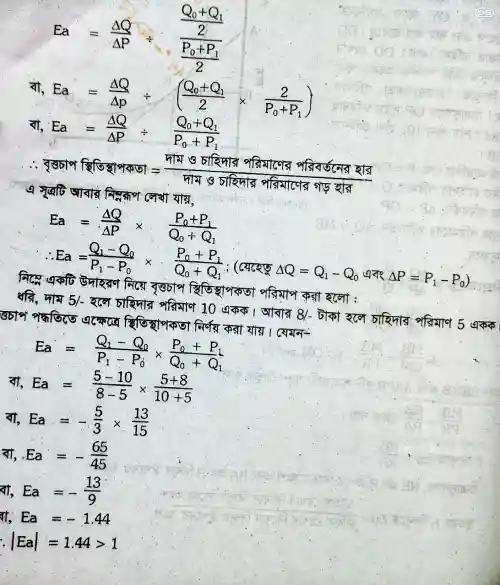 Ea = ΔQ/ΔP ÷ ((Q₀+Q₁)/2)/((P₀+P₁)/2)
বা, Ea = ΔQ/Δp ÷ ((Q₀+Q₁)/2 × 2/(P₀+P₁))
বা, Ea = ΔQ/ΔP ÷ (Q₀+Q₁)/(P₀ + P₁)
∴ বৃত্তচাপ স্থিতিস্থাপকতা = দাম ও চাহিদার পরিমাণের পরিবর্তনের হার/দাম ও চাহিদার পরিমাণের গড় হার
এ সূত্রটি আবার নিম্নরূপ লেখা যায়,
Ea = ΔQ/ΔP × (P₀+P₁)/(Q₀ + Q₁)
∴Ea = (Q₁ – Q₀)/(P₁ – P₀) × (P₀ + P₁)/(Q₀ + Q₁) ; (যেহেতু ΔQ = Q₁ – Q₀ এবং ΔP = P₁ – P₀)
নিম্নে একটি উদাহরণ নিয়ে বৃত্তচাপ স্থিতিস্থাপকতা পরিমাপ করা হলো :
ধরি, দাম 5/- হলে চাহিদার পরিমাণ 10 একক। আবার 8/- টাকা হলে চাহিদার পরিমাণ 5 একক।
ত্তচাপ পদ্ধতিতে এক্ষেত্রে স্থিতিস্থাপকতা নির্ণয় করা যায়। যেমন–
Ea = (Q₁ – Q₀)/(P₁ – P₀) × (P₀ + P₁)/(Q₀ + Q₁)
বা, Ea = (5 – 10)/(8 – 5) × (5+8)/(10 +5)
বা, Ea = – 5/3 × 13/15
বা, Ea = – 65/45
বা, Ea = – 13/9
বা, Ea = – 1.44
∴ |Ea| = 1.44 > 1